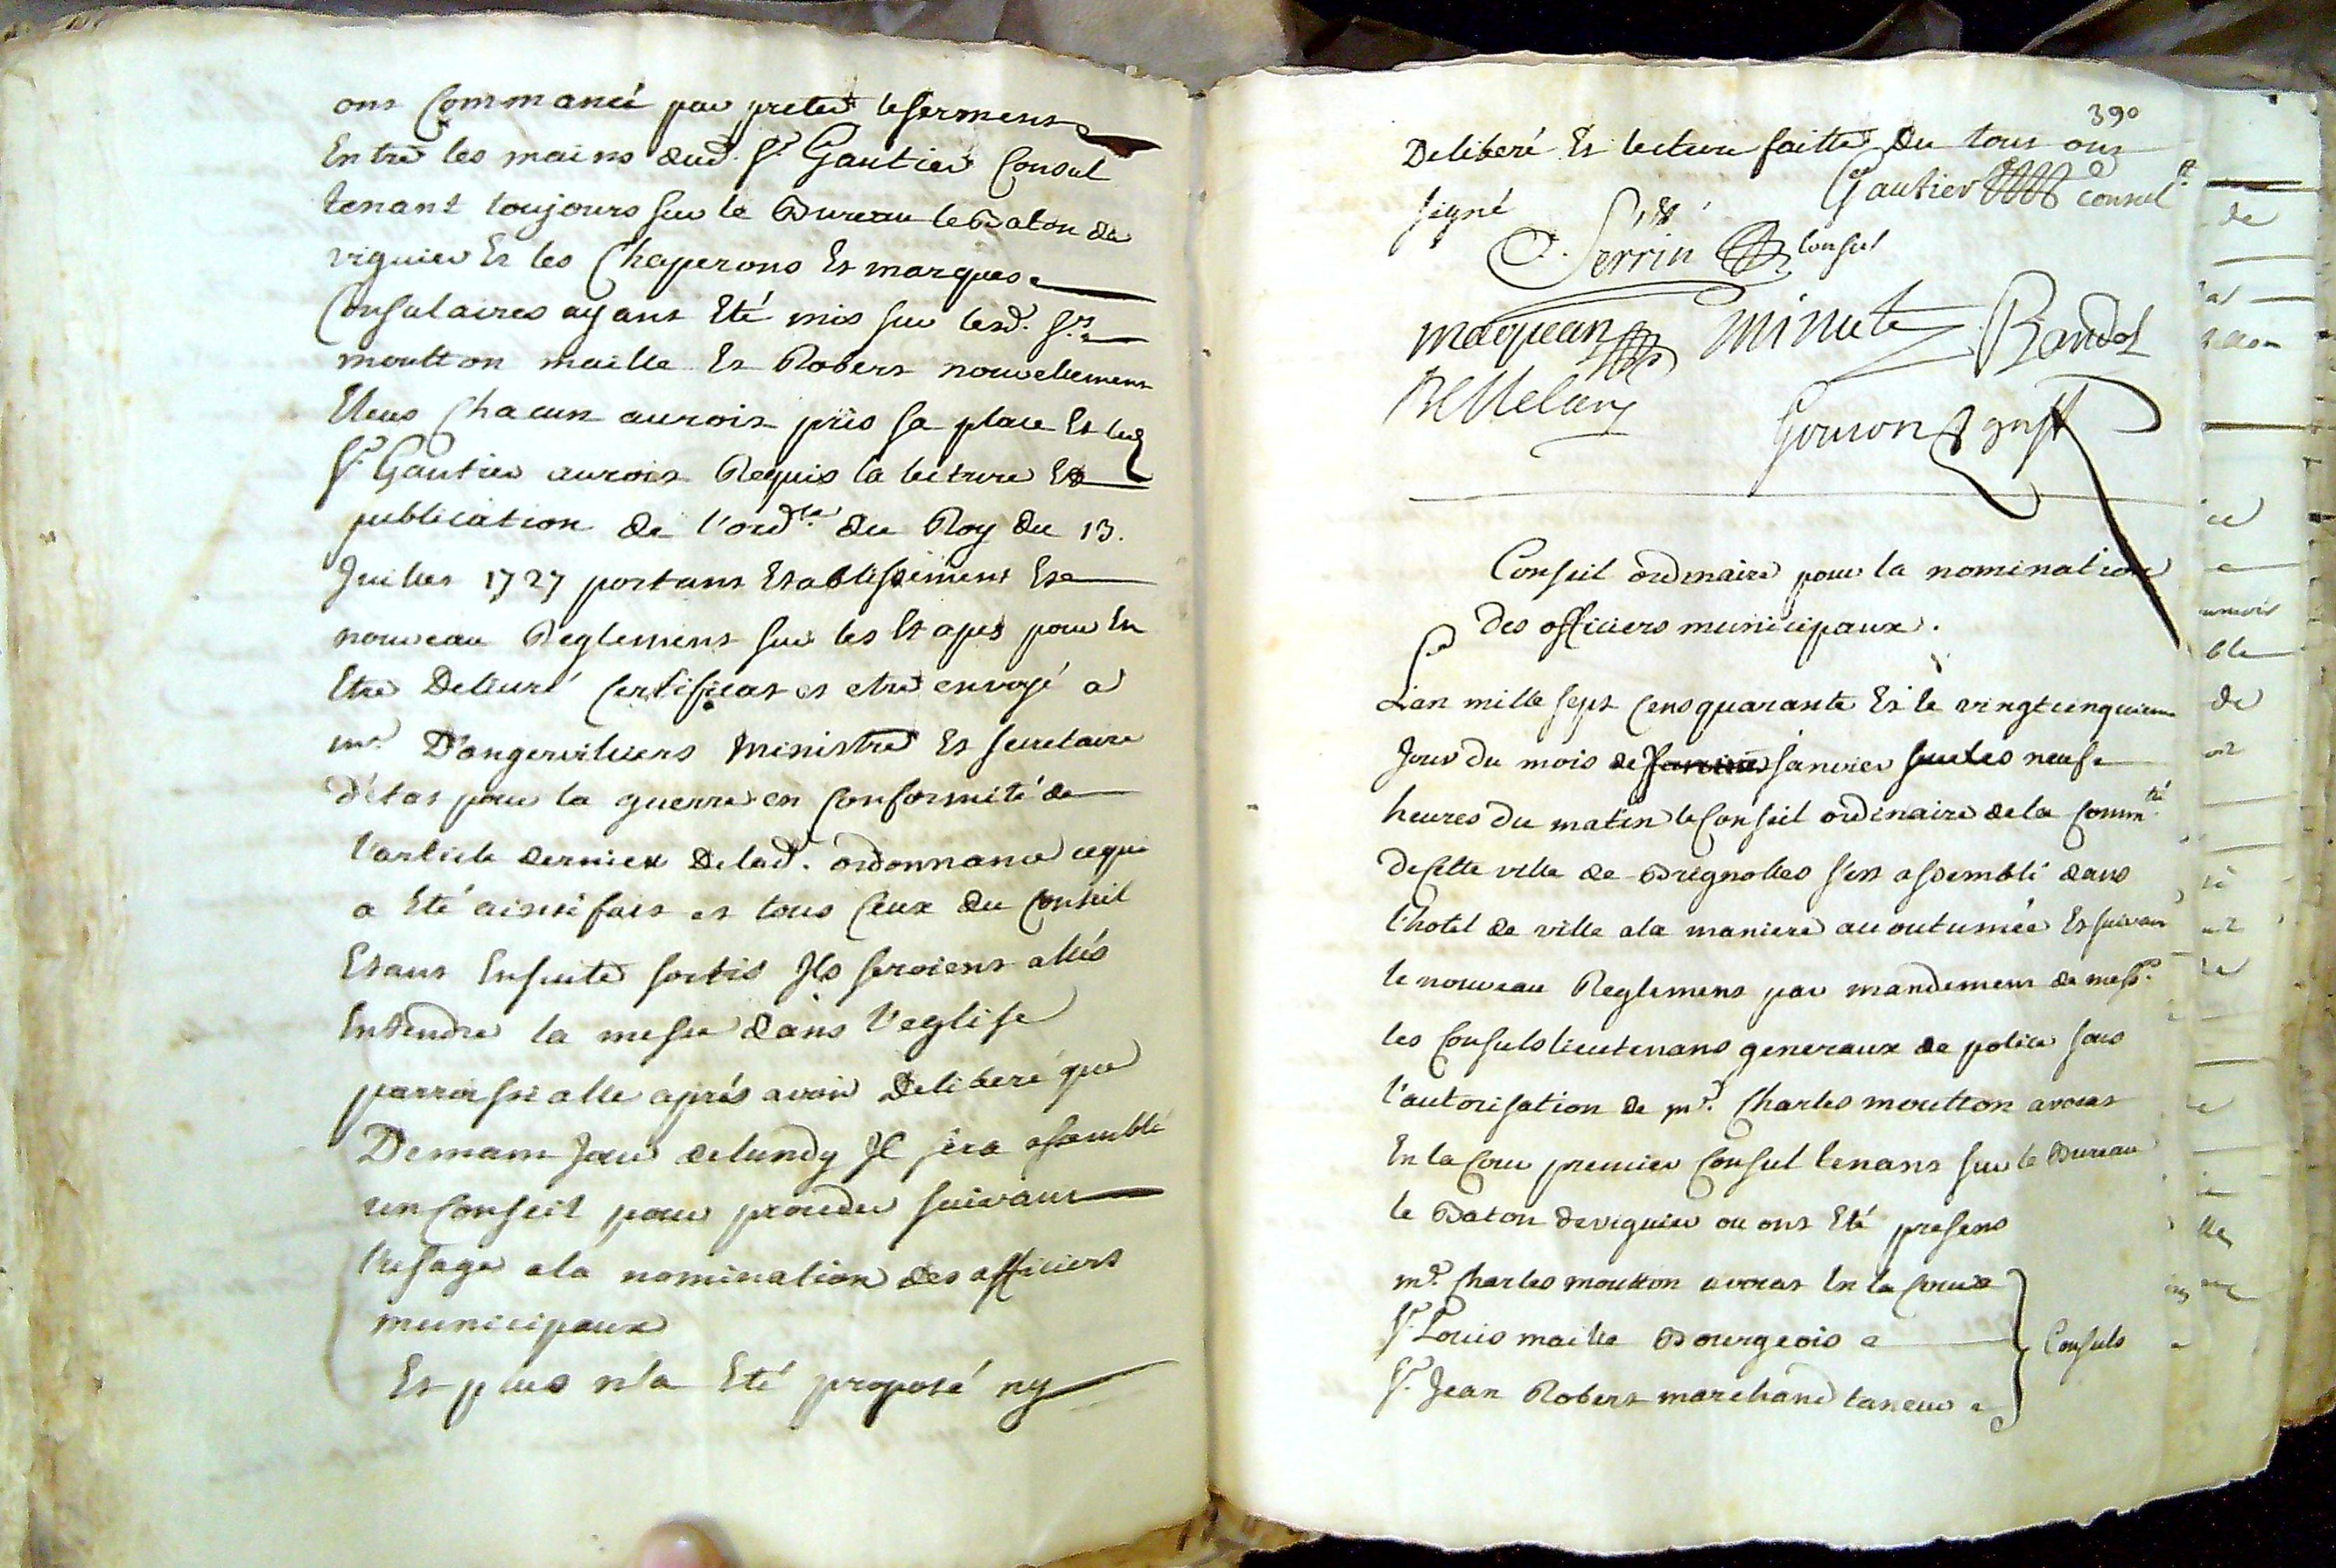 ont Commancé par preter le serment
Entre les mains dud. Sr. Gautier Consul
tenant toujours sur le Bureau le Baton de
viguier Et les Chaperons Et marques
Consulaires ayant Eté mis sur lesd. Srs.
moutton maille Et Robert nouvellement
Eleus Chacun auroit pris sa place Et led
Sr. Gautier auroit Requis la lecture Et
publication de l'ordce. du Roy du 13.
Juillet 1727 portant Establissement Et
nouveau Reglement sur les Etapes pour En
Etre Delivré Certificat et etre envoyé a
mr. D'angervilliers Ministre Et secretaire
d'état pour la guerre en Conformité de
l'article dernier de lad. ordonnance ce qui
a Eté ainsi fait et tous Ceux du Conseil
Etant Ensuite sortis Ils seroient allés
Entendre la messe dans l'eglise
parroissialle aprés avoir Deliberé que
Demain Jour de lundy Il sera assemblé
un Conseil pour proceder suivant
l'usage a la nomination des officiers
municipaux
Et plus n'a Eté proposé ny
390
Deliberé Et lecture faitte Du tout ont
signé
Gautier consul
Serrin Consul
maquan minute Baudol
Gouron greff
Conseil ordinaire pour la nomination
des officiers municipaux.
L'an mille sept Cens quarante Et le vingtcinquieme
Jour du mois de Janvier sur les neuf
heures du matin le Conseil ordinaire de la Commté.
de Cette ville de Brignolles s'est assemblé dans
l'hotel de ville a la maniere accoutumée Et suivant
le nouveau Reglement par mandement de messrs.
les Consuls lieutenans generaux de police sous
l'autorisation de mr. Charles moutton avocat
En la Cour premier Consul tenant sur le Bureau
le Baton de viguier ou ont Eté presens
mr. Charles moutton avocat En la Cour
Sr. Louis maille Bourgeois
Consuls
Sr. Jean Robert marchand taneur